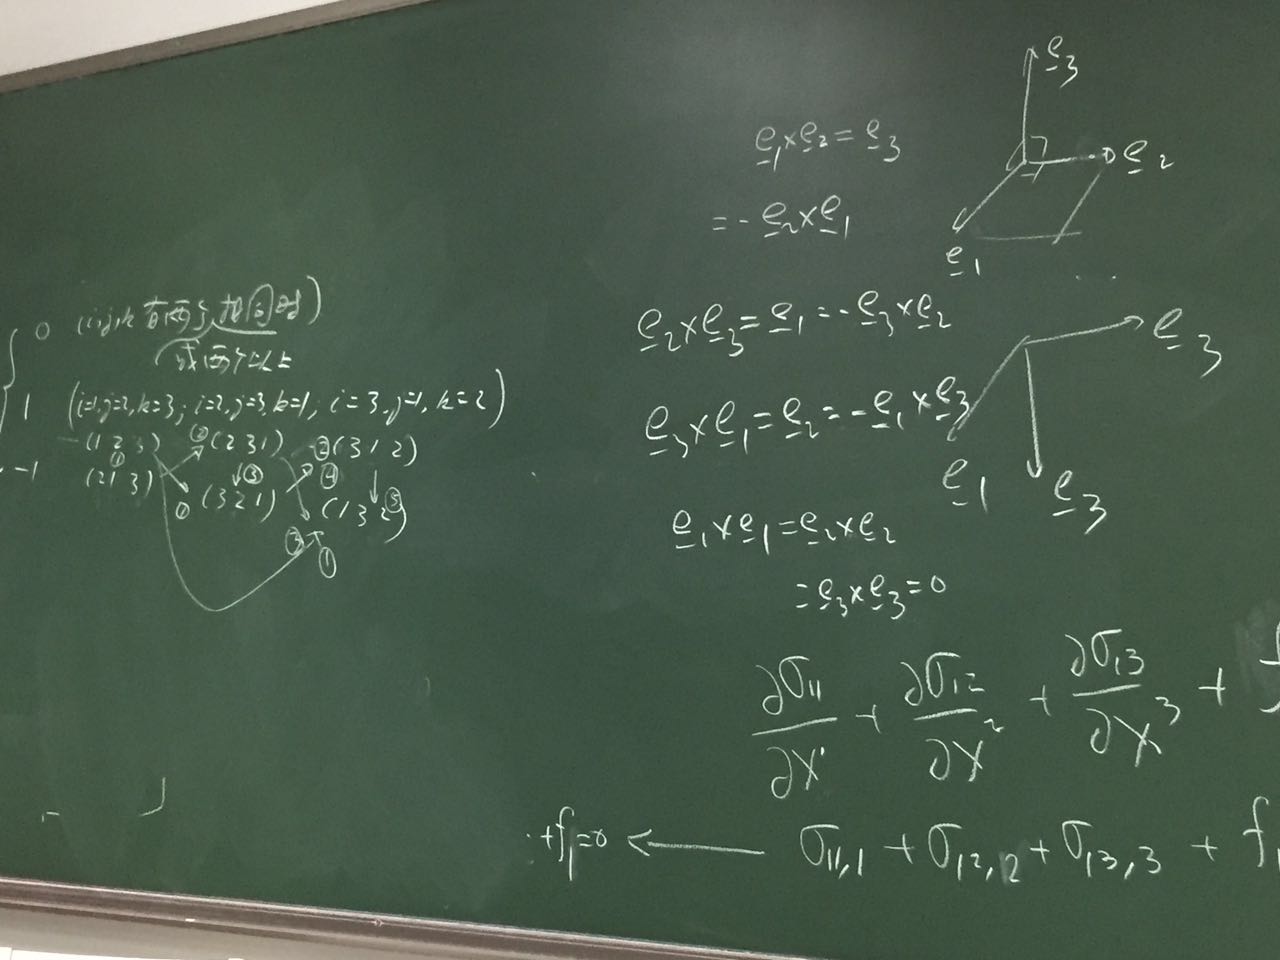 0 (i,j,k 有两个相同时)
或两个以上
1 (i=1,j=2,k=3; i=2,j=3,k=1; i=3,j=1,k=2)
(1 2 3) ② (2 3 1) ② (3 1 2)
-1 (2 1 3) ① ③ ④
① (3 2 1) (1 3 2) ⑤
③ ①
e₃
e₁×e₂=e₃
e₂
=-e₂×e₁
e₁
e₂×e₃=e₁=-e₃×e₂
e₃
e₃×e₁=e₂=-e₁×e₃
e₁ e₃
e₁×e₁=e₂×e₂
=e₃×e₃=0
∂σ₁₁/∂x¹ + ∂σ₁₂/∂x² + ∂σ₁₃/∂x³ + f
+f₁=0 ← σ₁₁,₁ + σ₁₂,₂ + σ₁₃,₃ + f₁